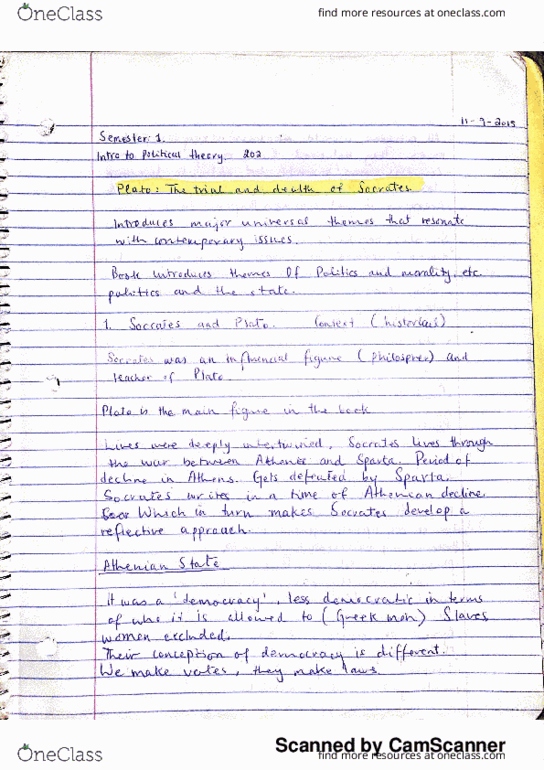 OneClass
find more resources at oneclass.com
11-9-2015
Semester: 1.
Intro to Political theory. 202
Plato: The trial and death of Socrates
Introduces major universal themes that resonate
with contemporary issues.
Book introduces themes Of Politics and morality, etc
politics and the state.
1. Socrates and Plato. Context (historical)
Socrates was an influencial figure (philospher) and
teacher of Plato
Plato is the main figure in the book
Lives were deeply intertwined, Socrates lives through
the war between Athens and Sparta. Period of
decline in Athens. Gets defeated by Sparta.
Socrates writes in a time of Athenian decline
Which in turn makes Socrates develop a
reflective approach.
Athenian State
it was a 'democracy', less democratic in terms
of who it is allowed to (Greek men) Slaves
women excluded.
Their conception of democracy is different.
We make votes, they make laws.
Scanned by CamScanner
OneClass
find more resources at oneclass.com